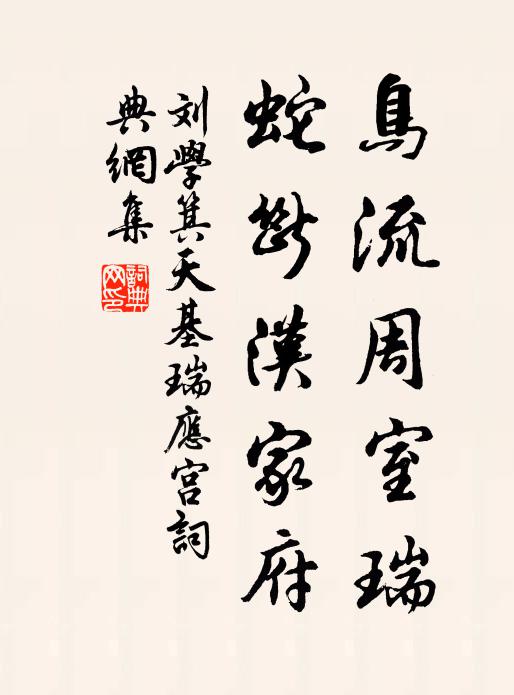 鳥流周室瑞
蛇斷漢家府
刘學箕天基瑞應宫詞
典網集
詞典
网印